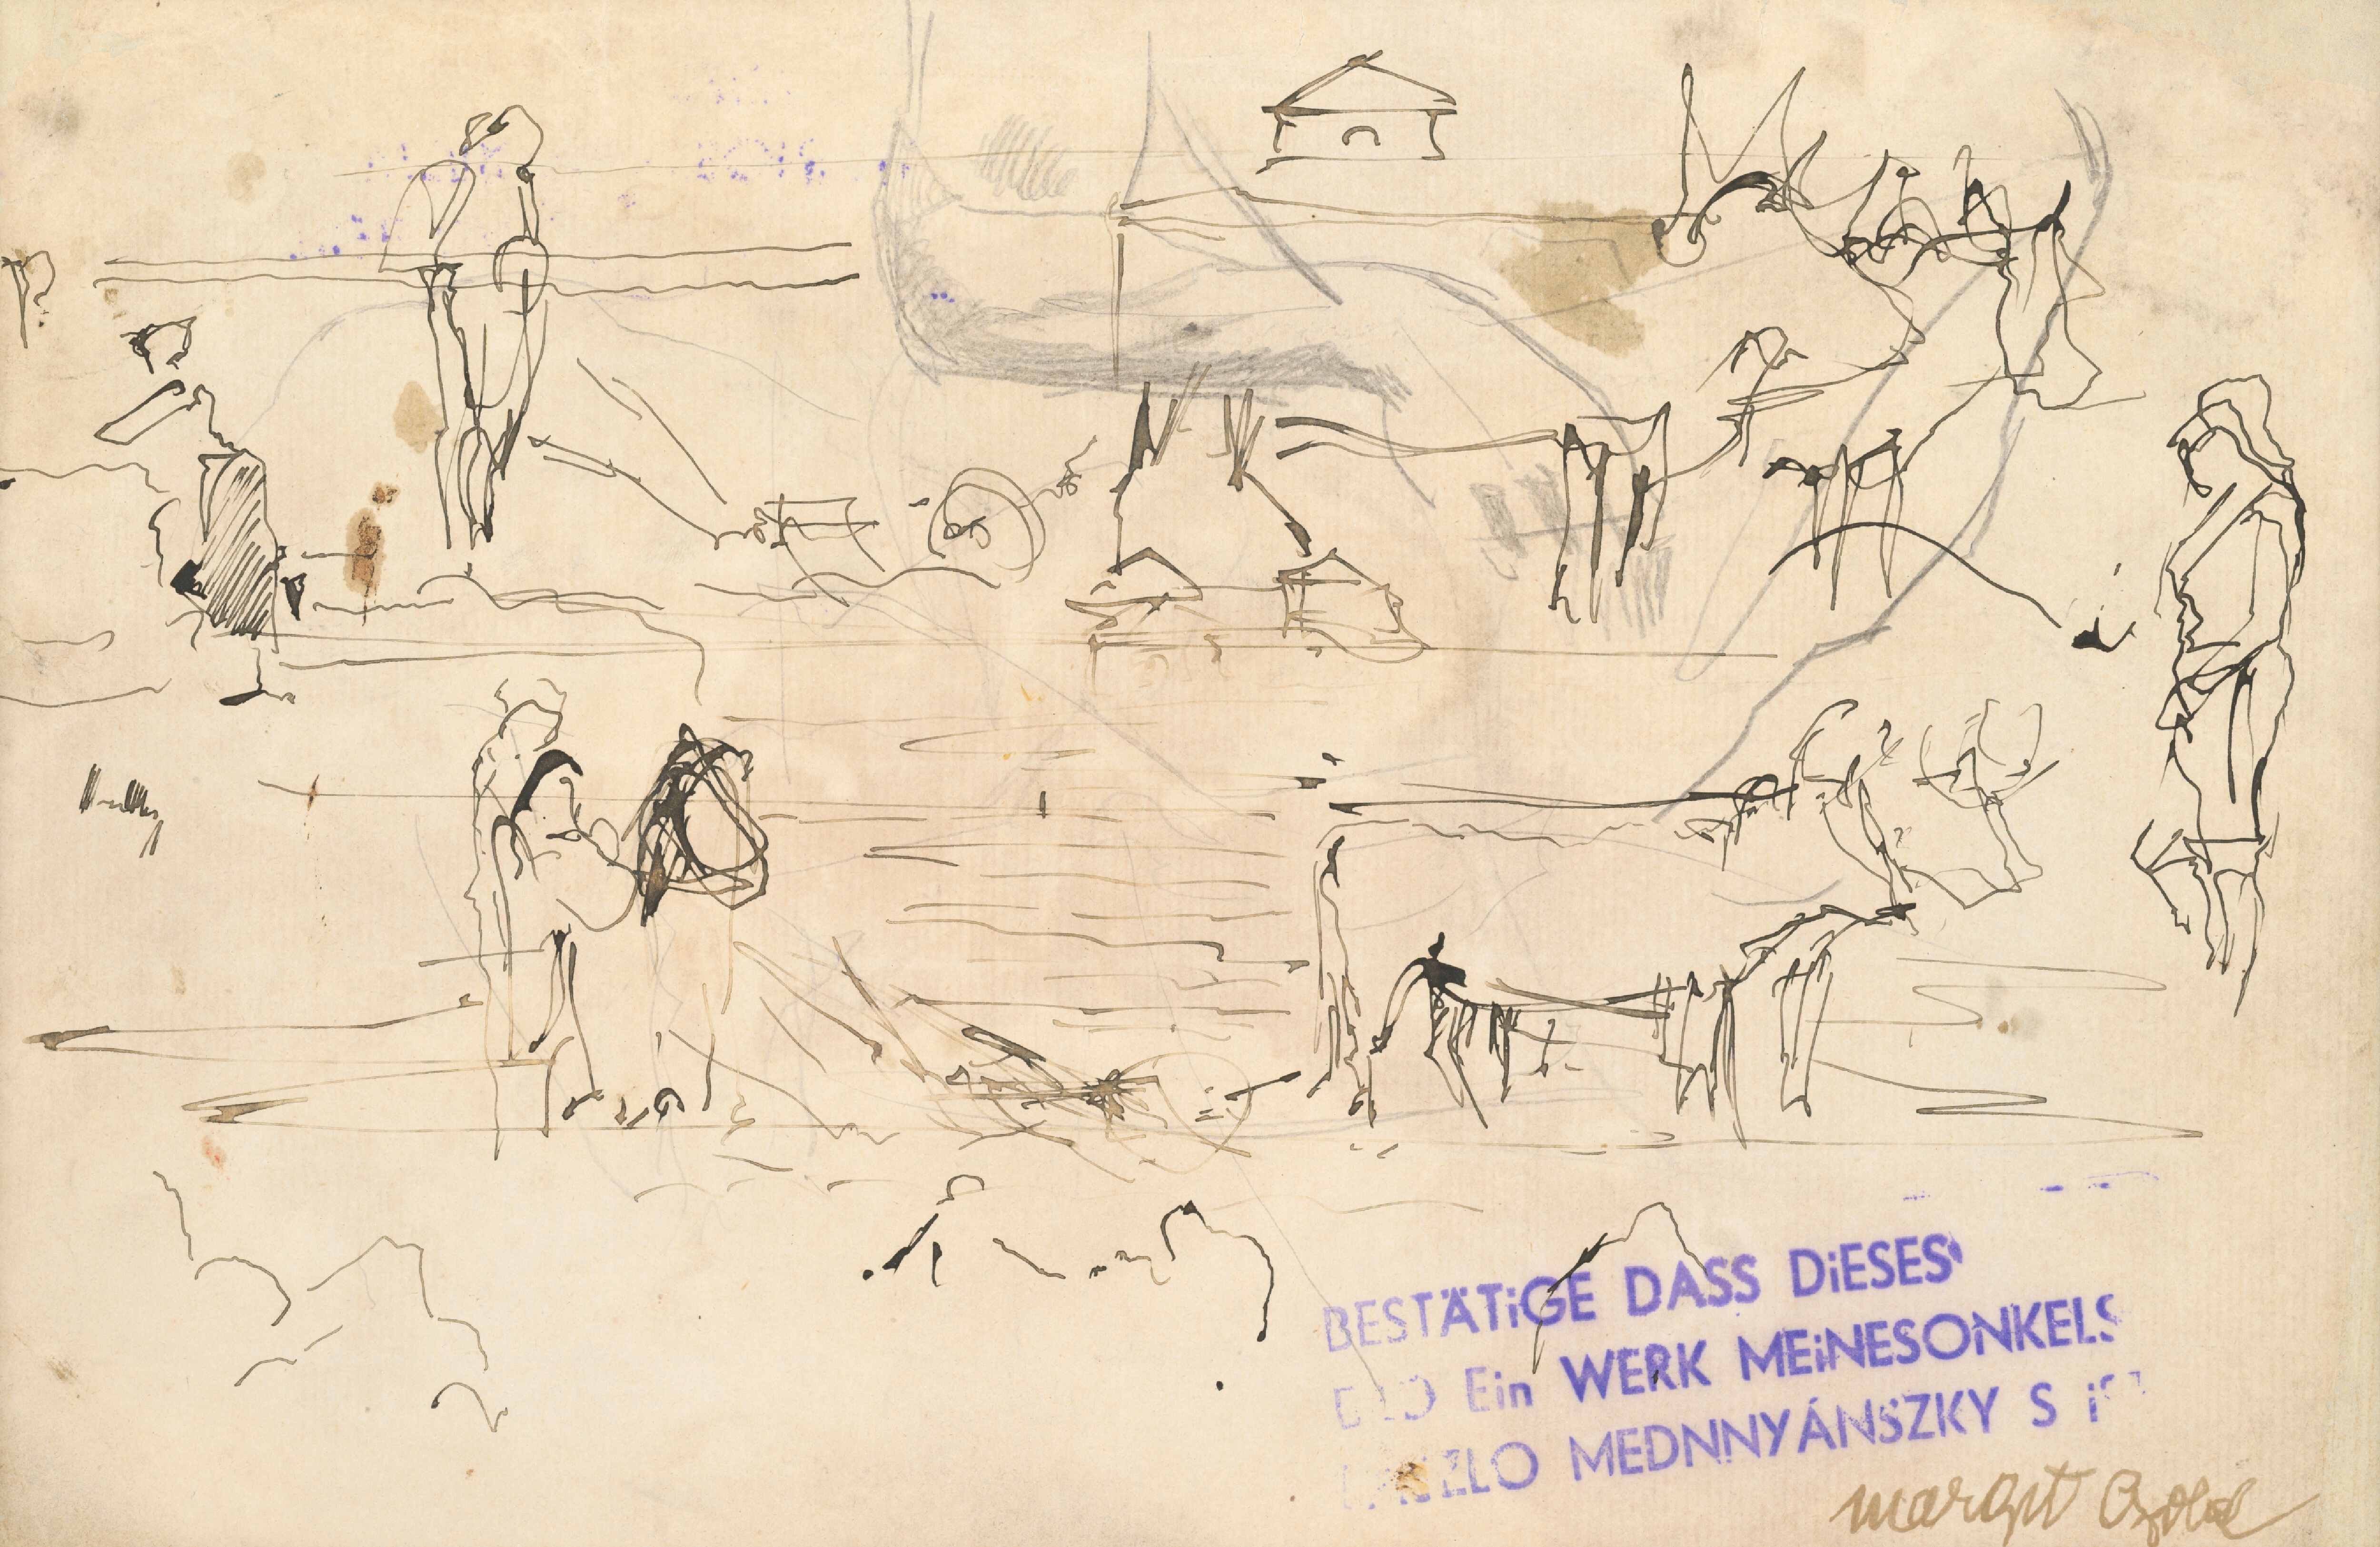 BESTÄTiGE DASS DiESES
Ein WERK MEiNESONKELS
MEDNNYÁNSZKY S
Margit